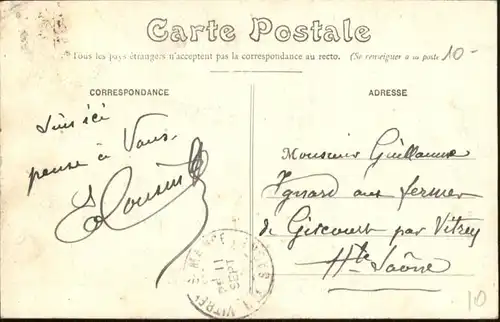 Carte Postale
Tous les pays étrangers n'acceptent pas la correspondance au recto. (Se renseigner à la poste
10-
CORRESPONDANCE
ADRESSE
suis ici
pense à Vous.
Monsieur Guillaume
aux fermes
de Gircourt par Vitrey
Hte Saône
VITREY
11
SEPT
10